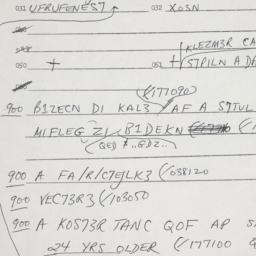 031 VFRUFENES7 032 XOSN
KLEZM3R CA
050 + 052 + S7PILN A DA
(/177090)
900 B1ZECN DI KAL3 AF A S7UL
MIFLEG ZI B1DEKN
(QED 7..QDZ..)
900 A FA/R/C7EJLK3 (/038120
900 VEC73R3 (/103050
900 A KOS73R TANC QOF AP S
24 YRS OLDER (/177100 Q